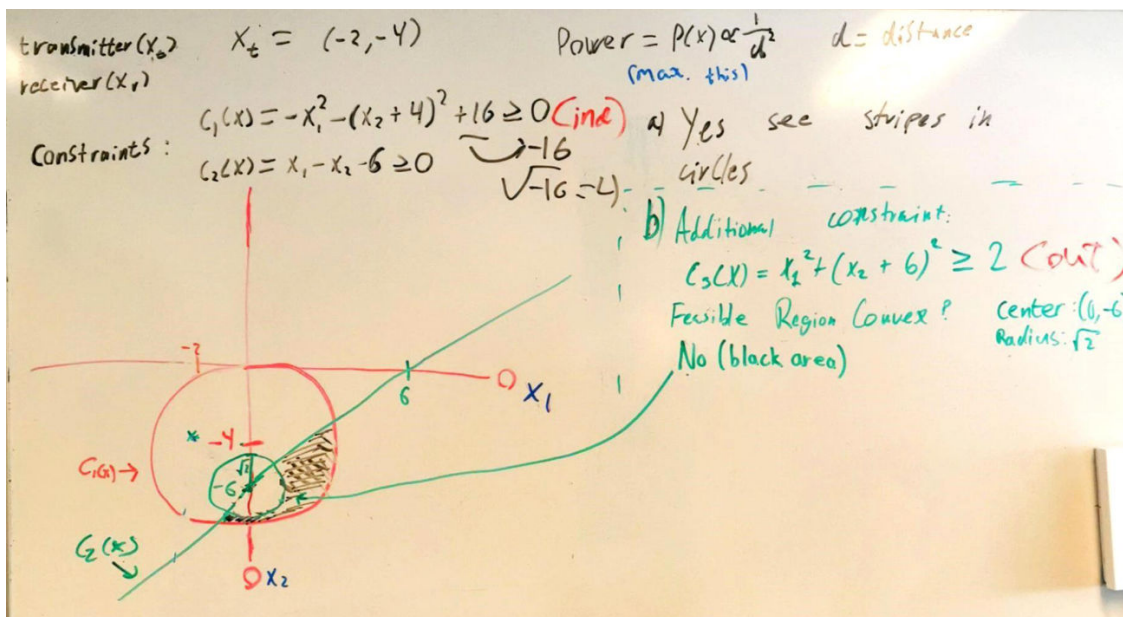 transmitter(x_t)
receiver(x_r)
X_t = (-2,-4)
Power = P(x) ∝ 1/d²   d = distance
(max. this)
Constraints :
C₁(x) = -x₁² - (x₂ + 4)² + 16 ≥ 0 (ind)
-16
C₂(x) = x₁ - x₂ - 6 ≥ 0
√-16 = 4
a) Yes see stripes in
circles
b) Additional constraint:
C₃(x) = x₁² + (x₂ + 6)² ≥ 2 (out)
Feasible Region Convex?
No (black area)
center: (0,-6
Radius: √2
-2
6
X₁
*
-4
√2
-6
C₁(x) →
C₂(x)
X₂